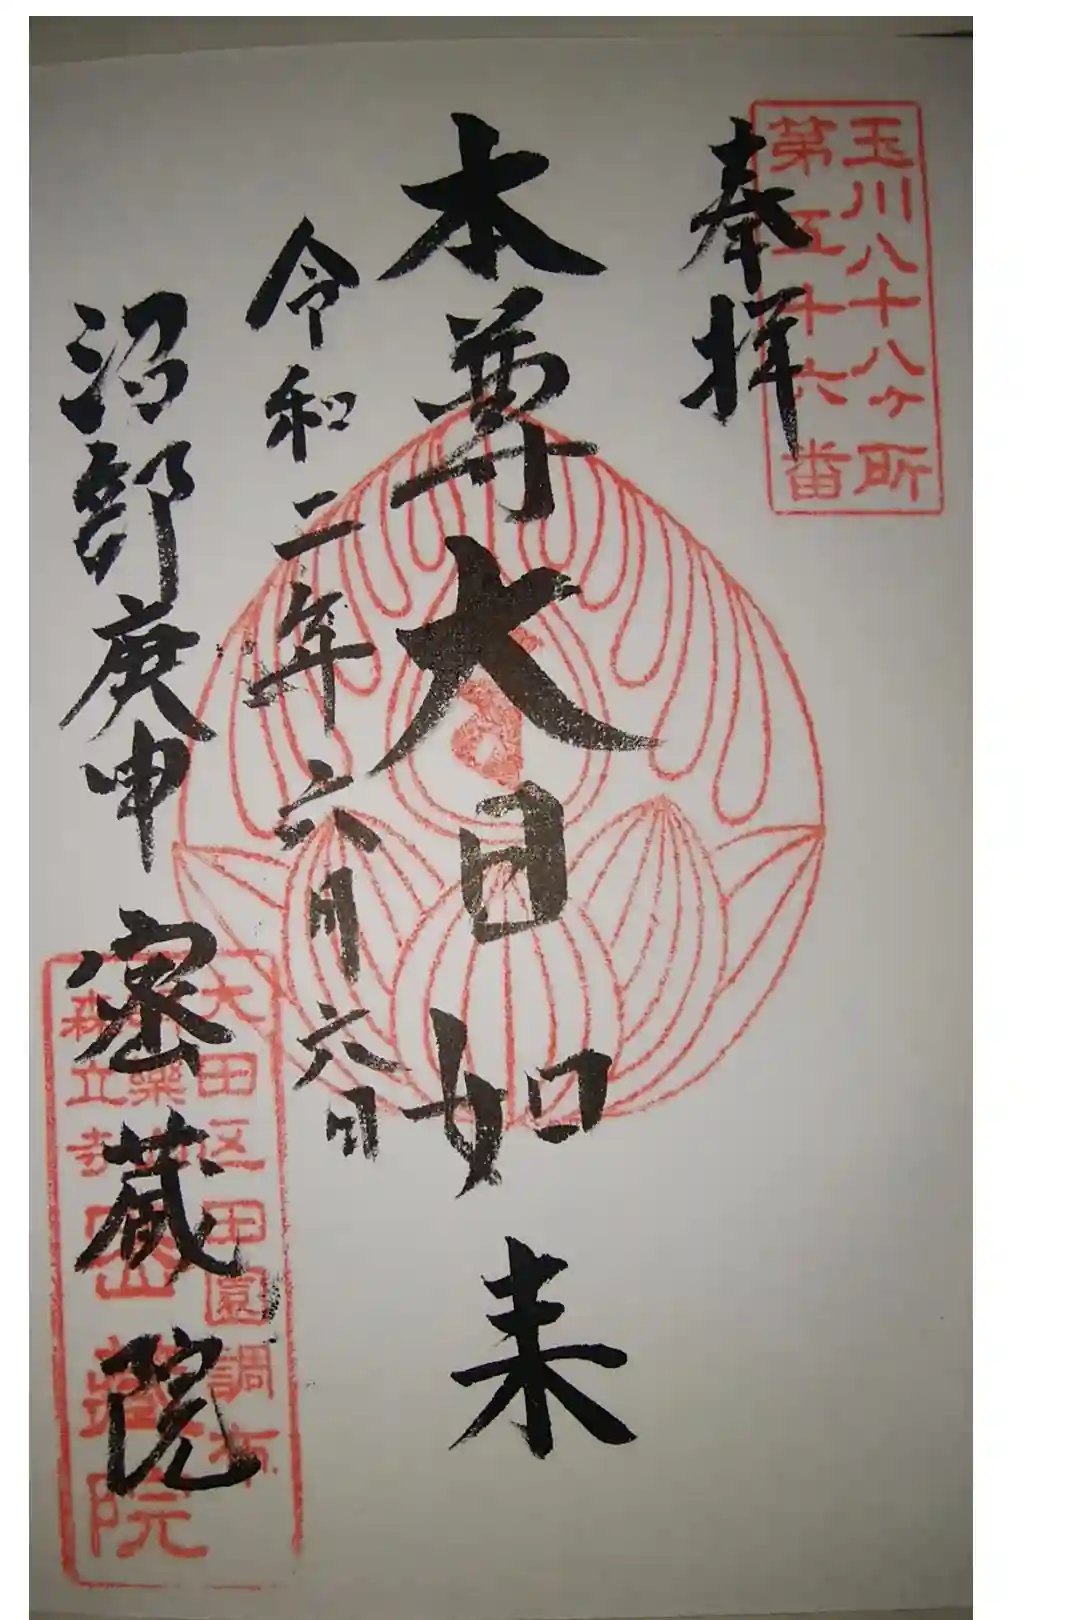 玉川八十八ヶ所
第五十六番
奉拝
本尊大日如来
令和二年六月六日
沼部庚申 密蔵院
大田区田園調布
密蔵院